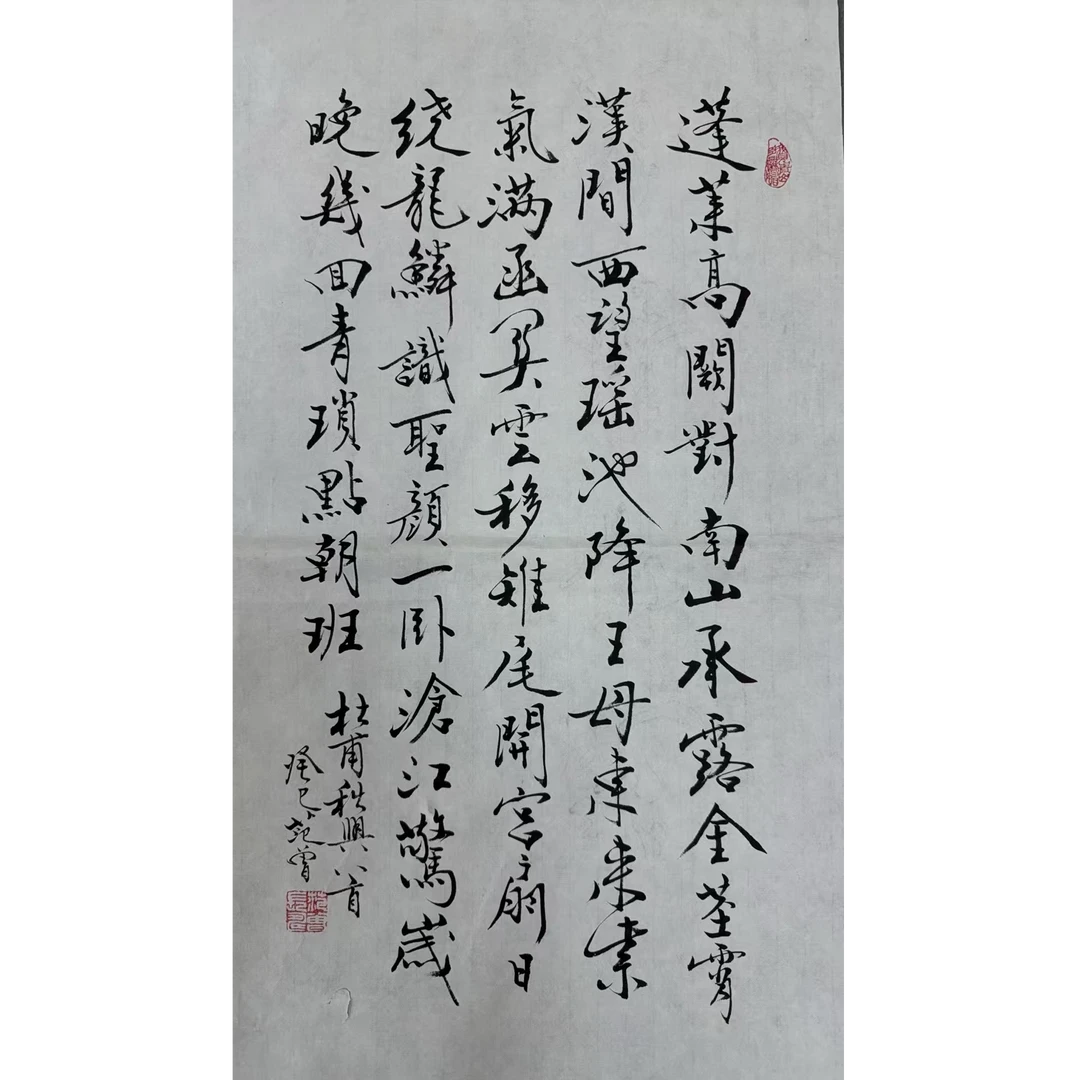 蓬莱高闕對南山承露金茎霄
漢間西望瑶池降王母東来紫
氣满函関雲移雉尾開宫扇日
绕龍鳞識聖顔一卧滄江驚歲
晚幾回青瑣點朝班
杜甫秋興八首
癸巳范曾